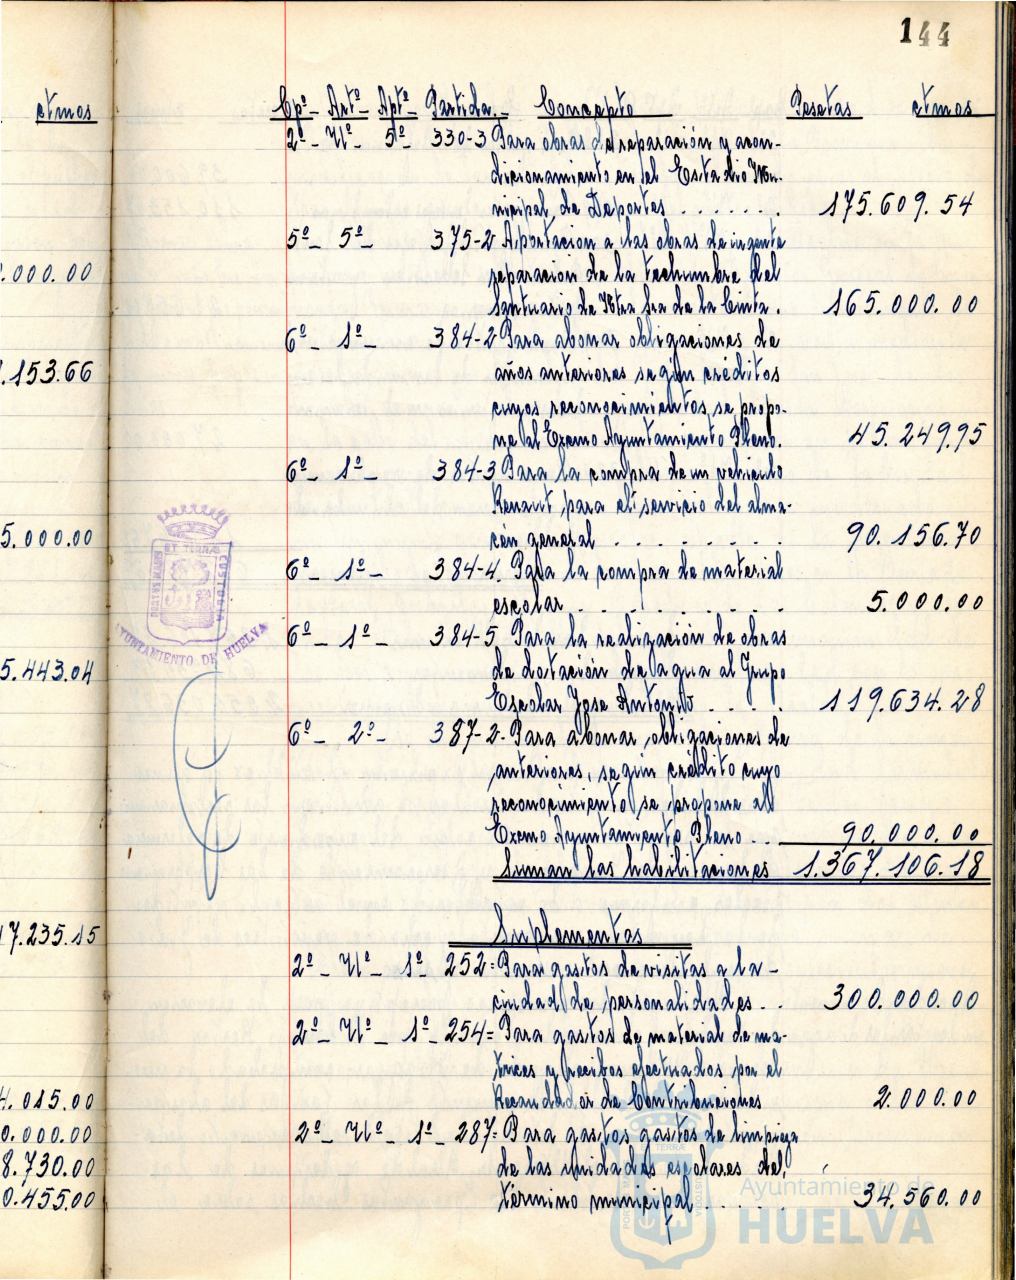 144
ctmos
Cpº - Artº - Aptº - Partida. - Concepto Pesetas ctmos
2º - Uº - 5º 330-3 Para obras de reparación y acon-
dicionamiento en el Estadio Mu-
nicipal de Deportes . . . . . . . 175.609.54
5º - 5º - 375-2 Aportacion a las obras de ingente
.000.00
reparación de la techumbre del
Santuario de Ntra Sra de la Cinta. 165.000.00
6º - 1º - 384-2 Para abonar obligaciones de
.153.66
años anteriores según créditos
cuyos reconocimientos se propo-
ne al Excmo Ayuntamiento Pleno. 45.249.95
6º - 1º - 384-3 Para la compra de un vehículo
Renault para el servicio del alma-
5.000.00
cén general . . . . . . 90.156.70
6º - 1º - 384-4. Para la compra de material
escolar . . . . . . . . 5.000.00
6º - 1º - 384-5 Para la realización de obras
5.443.04
de dotación de agua al Grupo
Escolar Jose Antonio . . . . 119.634.28
6º - 2º - 387-2- Para abonar obligaciones de
anteriores, según crédito cuyo
reconocimiento se propone al
Excmo Ayuntamiento Pleno . . 90.000.00
Suman las habilitaciones 1.367.106.18
17.235.15
Suplementos
2º - Uº - 1º - 252= Para gastos de visitas a la -
ciudad de personalidades. 300.000.00
2º - Uº - 1º - 254= Para gastos de material de ma-
trices y recibos efectuados por el
4.015.00
Recaudador de Contribuciones 2.000.00
0.000.00
2º - Uº - 1º - 287= Para gastos gastos de limpieza
8.730.00
de las Unidades escolares del
0.455.00
término municipal . . . . . 34.560.00
ET TERRÆ
CUSTODIA
AYUNTAMIENTO DE HUELVA
Ayuntamiento de
HUELVA